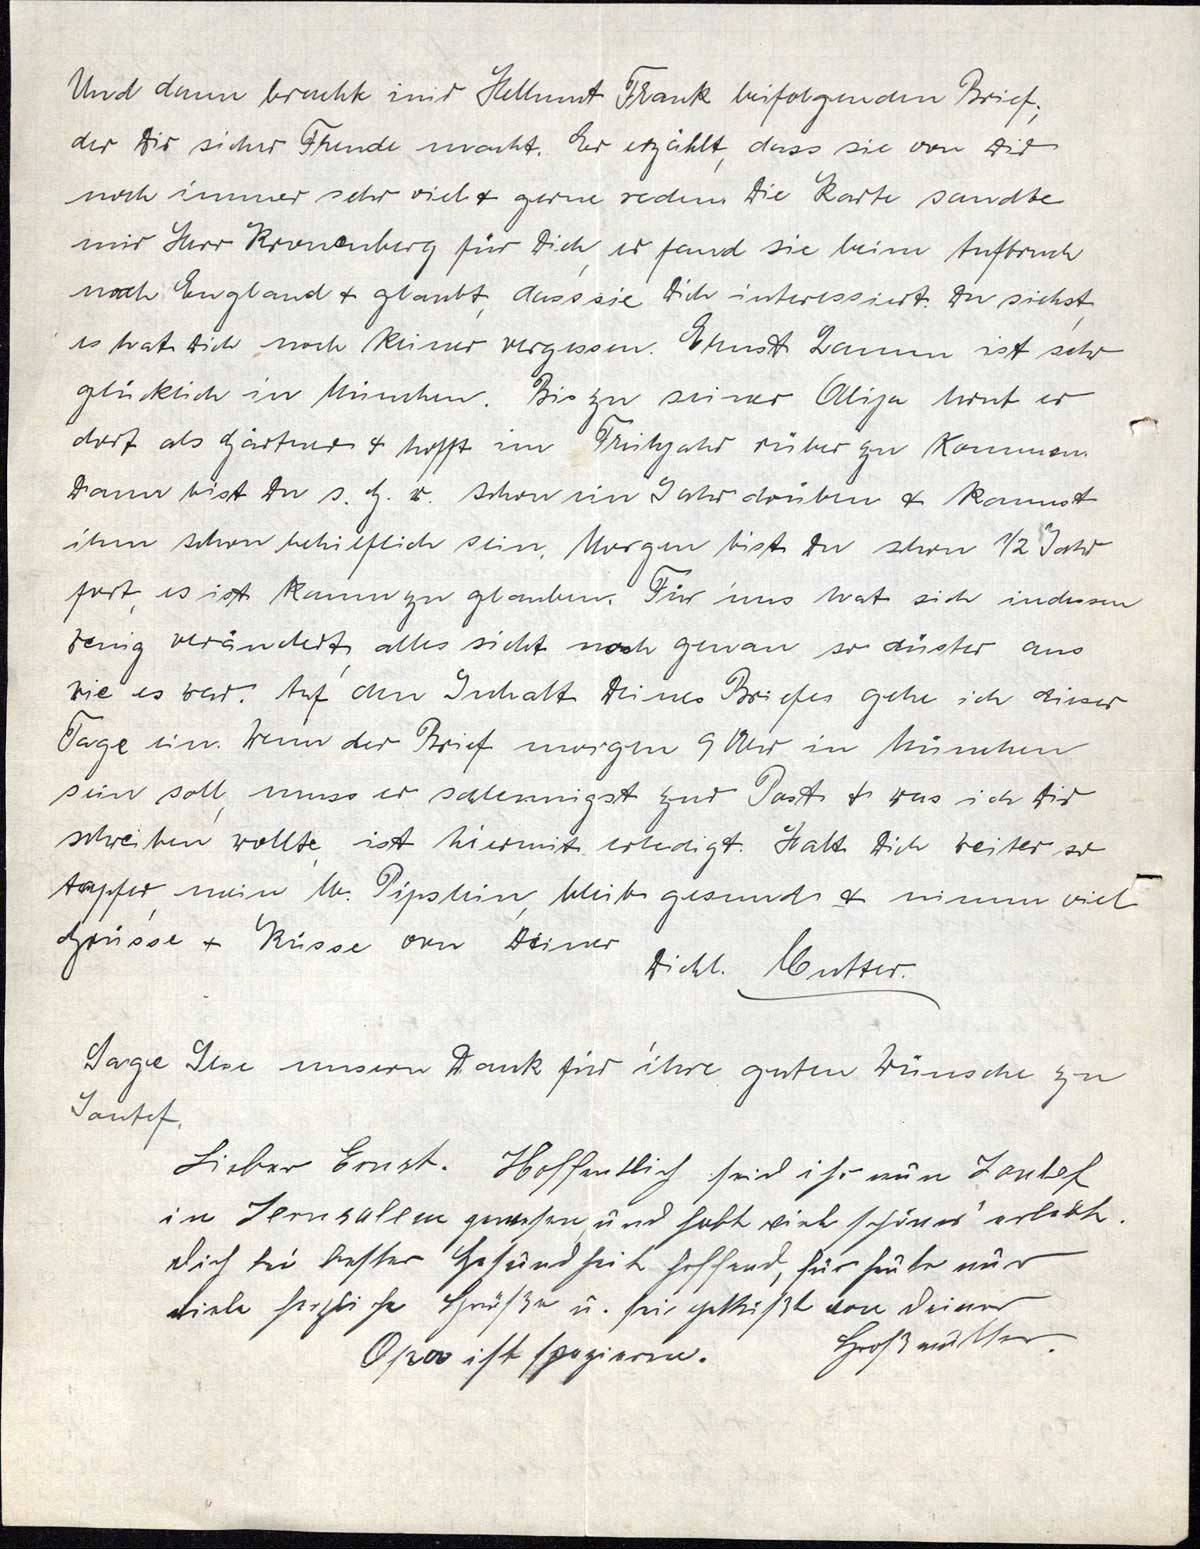 Und dann brachte mir Hellmut Frank beifolgenden Brief,
der Dir sicher Freude macht. Er erzählt, dass sie von Dir
noch immer sehr viel & gerne reden. Die Karte sandte
mir Herr Kronenberg für Dich, er fand sie beim Aufbruch
nach England & glaubt, dass sie Dich interessiert. Du siehst,
es hat Dich noch keiner vergessen. Ernst Lamm ist sehr
glücklich in München. Bis zu seiner Alija lernt er
dort als Gärtner & hofft im Frühjahr rüber zu kommen.
Dann bist Du s. G. w. schon ein Jahr drüben & kannst
ihm schon behilflich sein. Morgen bist Du schon 1/2 Jahr
fort, es ist kaum zu glauben. Für uns hat sich indessen
wenig verändert, alles sieht noch genau so düster aus
wie es war. Auf den Inhalt Deines Briefes gehe ich dieser
Tage ein. Wenn der Brief morgen 9 Uhr in München
sein soll, muss er schleunigst zur Post & was ich Dir
schreiben wollte, ist hiermit erledigt. Halt Dich weiter so
tapfer, mein lb. Pipslein, bleib gesund & nimm viel
Grüsse & Küsse von Deiner
Dichl. Mutter.
Sage Ilse unsern Dank für ihre guten Wünsche zu
Jontef.
Lieber Ernst. Hoffentlich seid ihr nun Jontef
in Jerusalem gewesen, und habt viel schönes erlebt.
Dich bei bester Gesundheit hoffend, für heute nur
viele herzliche Grüße u. sei geküßt von Deiner
Großmutter.
Opa ist spazieren.